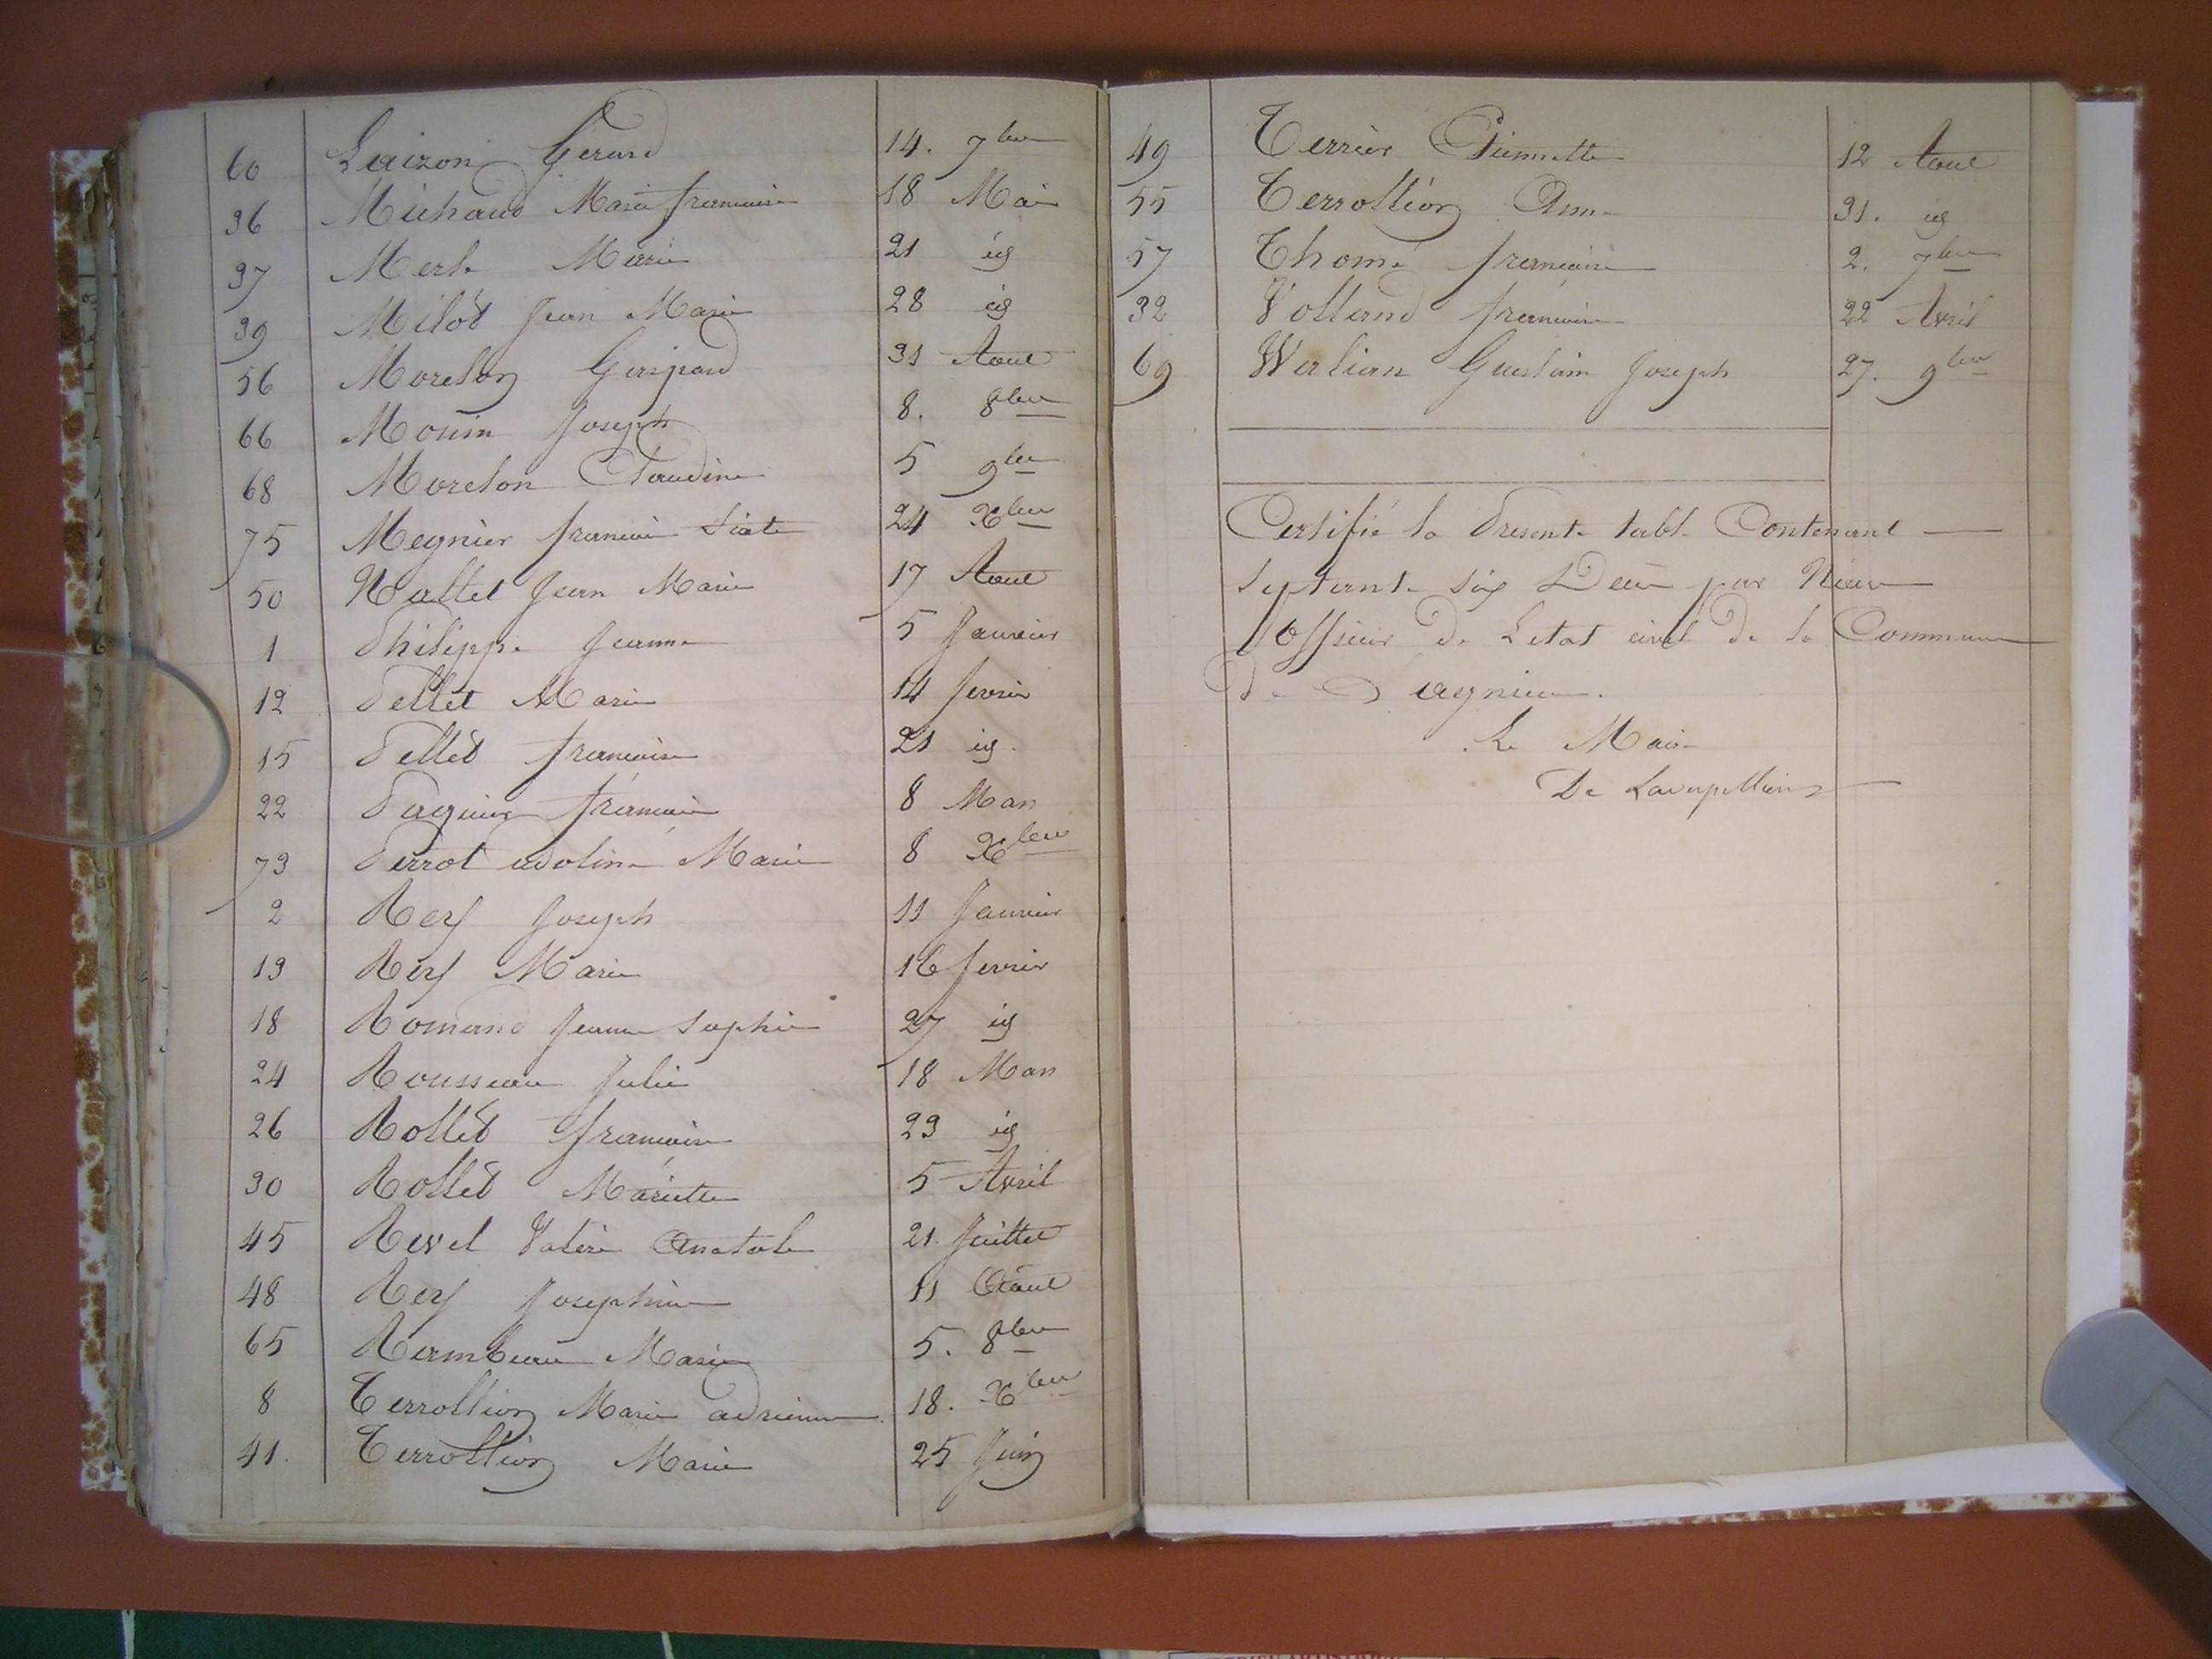 60 Laizon Gerard 14. 7bre
36 Michaud Marie francoise 18 Mai
37 Merle Marie 21 id
39 Milot Jean Marie 28 id
56 Morelon Gaspard 31 Aout
66 Morin Joseph 8. 8bre
68 Morelon Claudine 5 9bre
75 Megnier francois 24 Xbre
50 Nallet Jean Marie 17 Aout
1 Philippe Jeanne 5 Janvier
12 Pellet Marie 14 fevrier
15 Pellet francoise 21 id.
22 Paquier francois 8 Mars
73 Perrot adoline Marie 8 Xbre
2 Rey Joseph 11 Janvier
13 Rey Marie 16 fevrier
18 Romand Jeanne Sophie 27 id
24 Rousseau Julie 18 Mars
26 Rollet francoise 23 id
30 Rollet Mariette 5 Avril
45 Revel Valerie Anatole 21. Juillet
48 Rey Josephine 11 Aout
65 Rambeau Marie 5. 8bre
8 Terrollion Marie adrienne 18. Xbre
41. Terrollion Marie 25 Juin
49 Terrier Pierrette 12 Aout
55 Terrollion Anne 31. id
57 Thomé francoise 2. 7bre
32 Volland francoise 22 Avril
69 Werlian Guislain Joseph 27. 9bre
Certifié la Presente table Contenant
Septante Six Deces par Nous
Officier De Letat civil De la Commune
De Dagnieu.
Le Maire